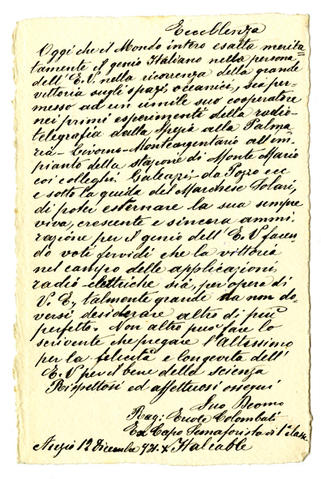 Eccellenza
Oggi che il Mondo intero esalta merita-
tamente il genio Italiano nella persona
dell'E.V. nella ricorenza della grande
vittoria sugli spazi oceanici, sia per-
messo ad un umile suo cooperatore
nei primi esperimenti della radio-
telegrafia dalla Spezia alla Palma
ria - Livorno - Montargentario all'im-
pianto della stazione di Monte Mario
coi colleghi Galeazzi - da Pozzo ecc
e sotto la guida del Marchese Solari,
di poter esternare la sua sempre
viva, crescente e sincera ammi-
razione per il genio dell'E.V. facen
do voti fervidi che la vittoria
nel campo delle applicazioni
radio-elettriche sia, per opera di
V.E, talmente grande da non do-
versi desiderare altro di più
perfetto. Non altro può fare lo
scrivente che pregare l'Altissimo
per la felicità e longevità dell'
E.V. per il bene della scienza
Rispettosi ed affettuosi ossequi
Suo Devmo
Rag: Ercole Colombati
Ex Capo Semaforista di 1a classe
12 Dicembre Italcable